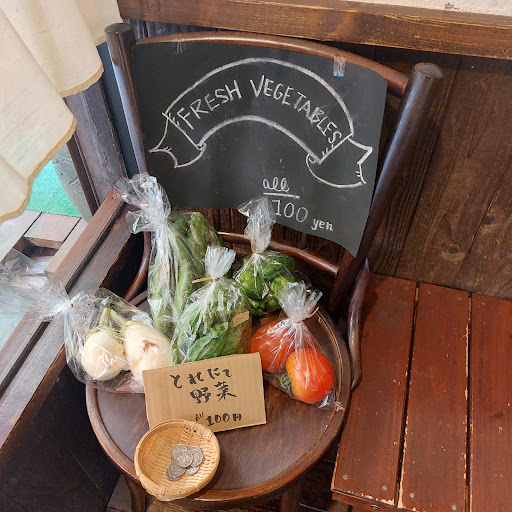 FRESH VEGETABLES
all
100 yen
とれたて
野菜
All 100円